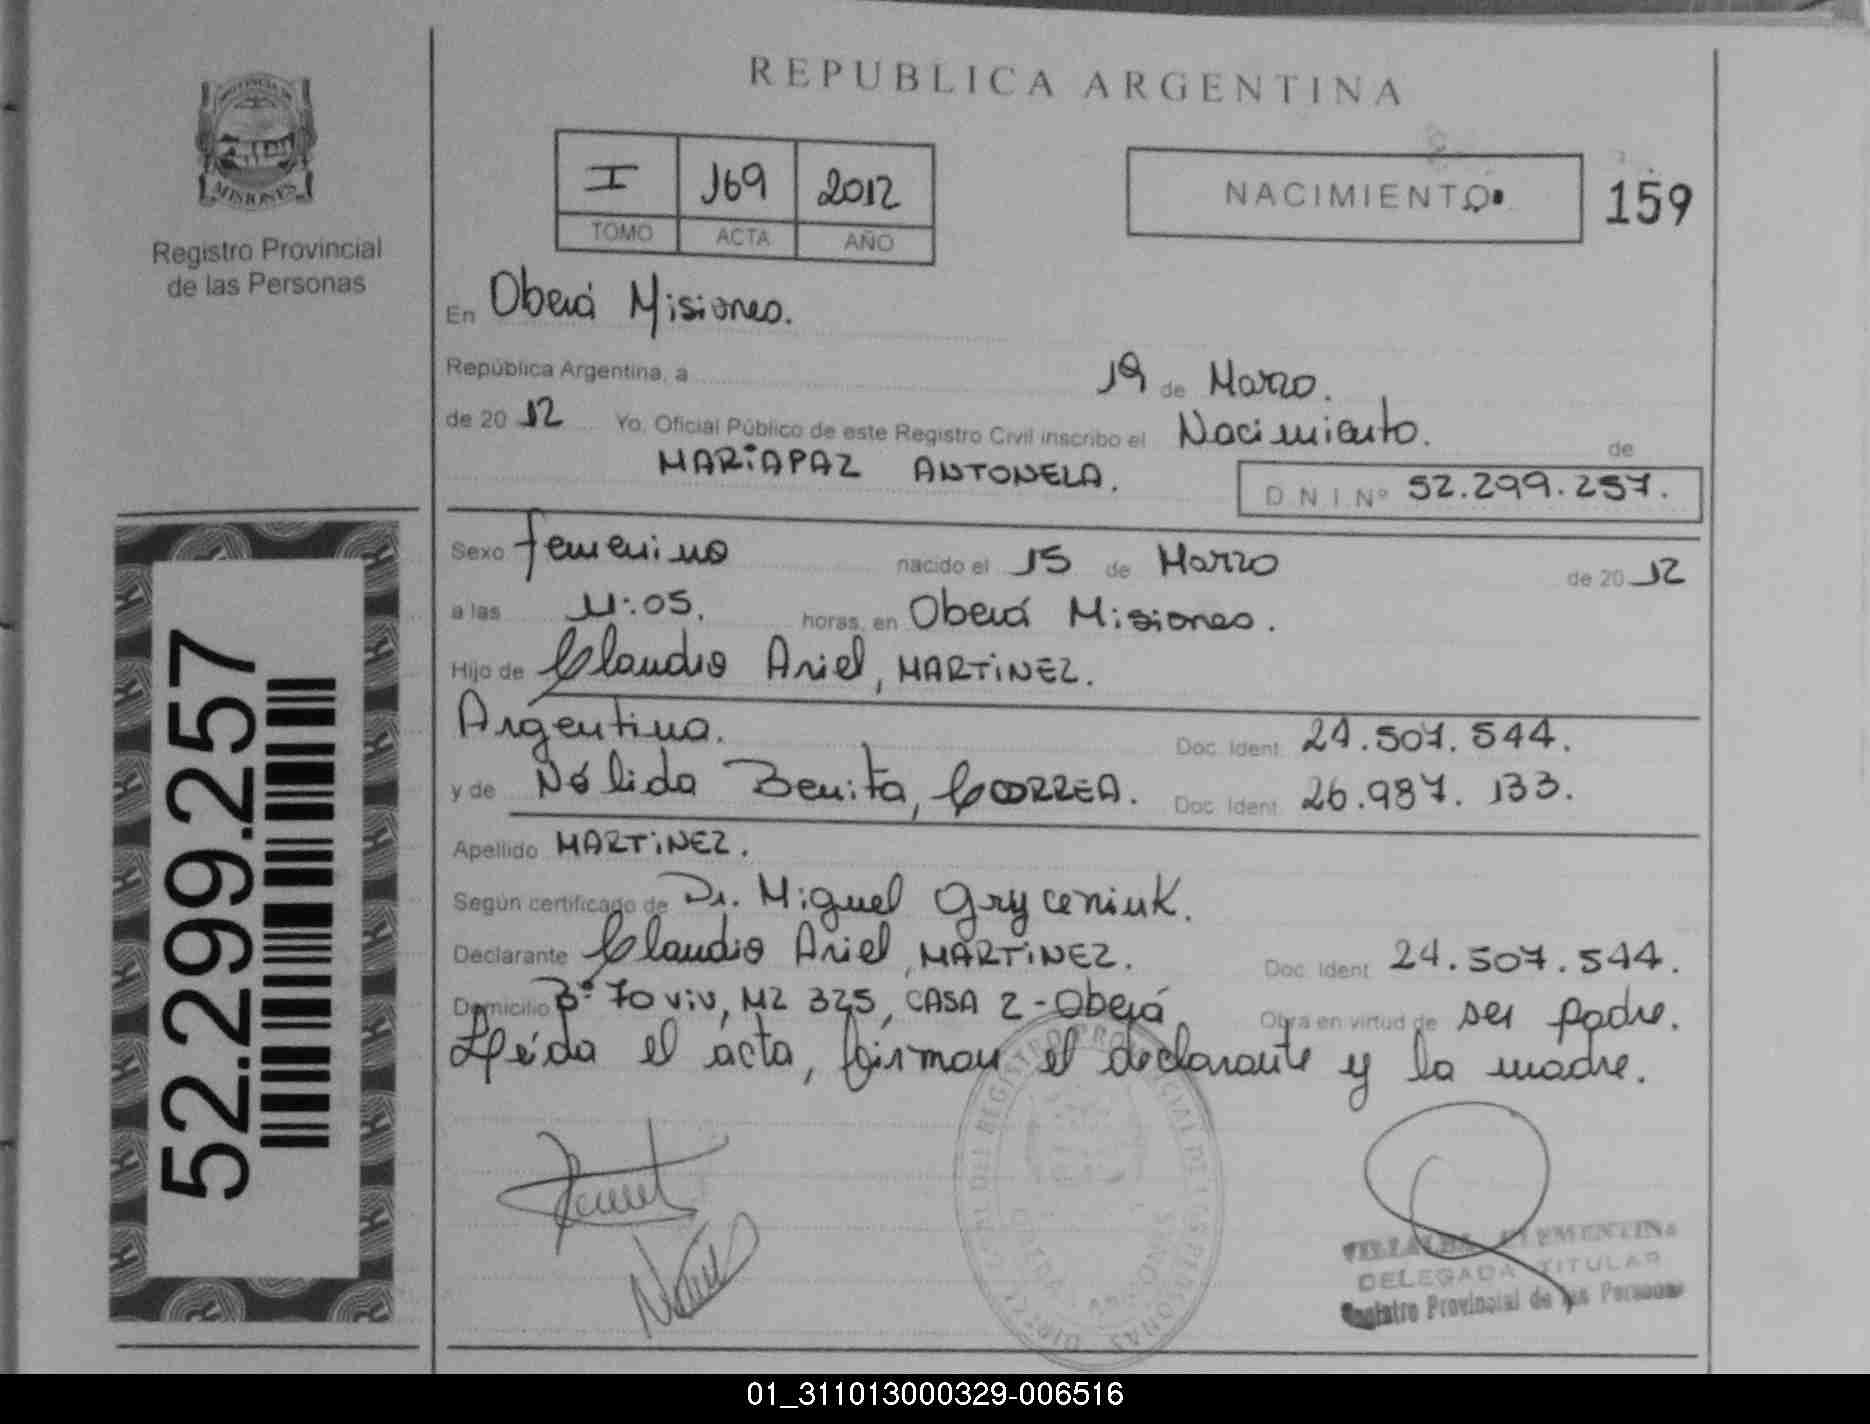 REPUBLICA ARGENTINA
PROVINCIA DE
MISIONES
Registro Provincial
de las Personas
I 169 2012
TOMO ACTA AÑO
NACIMIENTO. 159
En Oberá Misiones.
República Argentina, a 19 de Marzo.
de 2012 Yo, Oficial Público de este Registro Civil inscribo el Nacimiento. de
MARIAPAZ ANTONELA. DNI Nº 52.299.257.
Sexo femenino nacido el 15 de Marzo de 2012
a las 11:05. horas, en Oberá Misiones.
Hijo de Claudio Ariel, MARTINEZ.
Argentina. Doc. Ident. 24.507.544.
y de Nélida Benita, CORREA. Doc. Ident. 26.987.133.
Apellido MARTINEZ.
Según certificado de Dr. Miguel Gryceniuk.
Declarante Claudio Ariel, MARTINEZ. Doc. Ident. 24.507.544.
Domicilio Bº 70 viv, MZ 325, CASA 2 - Oberá Obra en virtud de ser padre.
Leída el acta, firman el declarante y la madre.
52.299.257
REGISTRO PROVINCIAL DE LAS PERSONAS
CLEMENTINA
DELEGADA TITULAR
Registro Provincial de las Personas
01_311013000329-006516